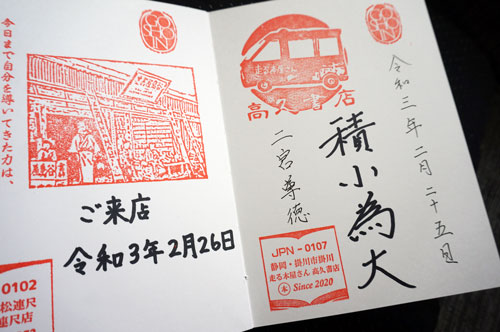 今日まで自分を導いてきた力は、
ご来店
令和3年2月26日
0102
松連尺
連尺店
高久書店
令和三年二月二十五日
積小為大
二宮尊徳
JPN - 0107
静岡・掛川市掛川
走る本屋さん 高久書店
本 Since 2020